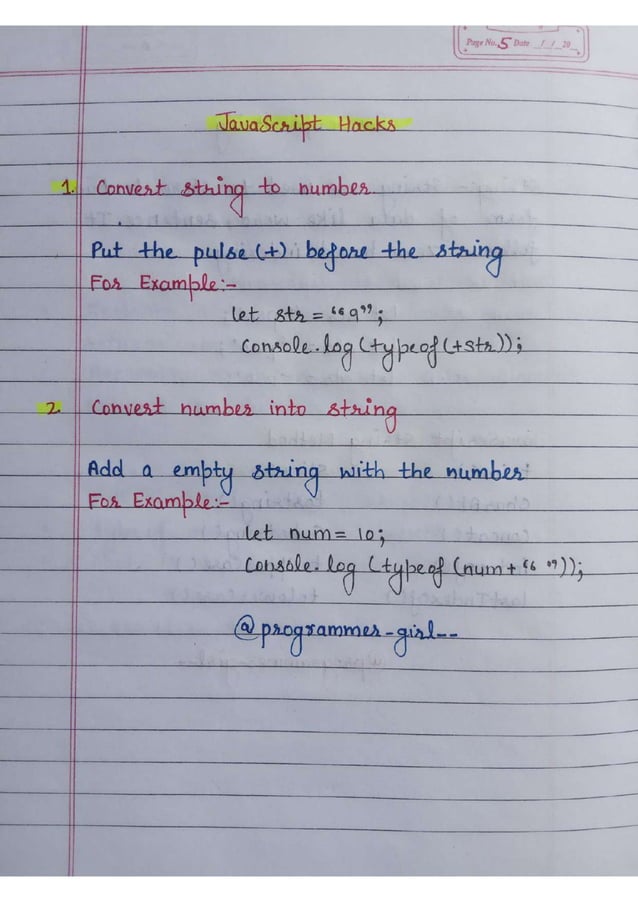 Page No. 5 Date / / 20
JavaScript Hacks
1. Convert string to number
Put the pulse (+) before the string
For Example:-
let str = “9”;
Console.log (typeof(+str));
2. Convert number into string
Add a empty string with the number
For Example:-
let num = 10;
Console.log (typeof (num + “ ”));
@programmer-girl--